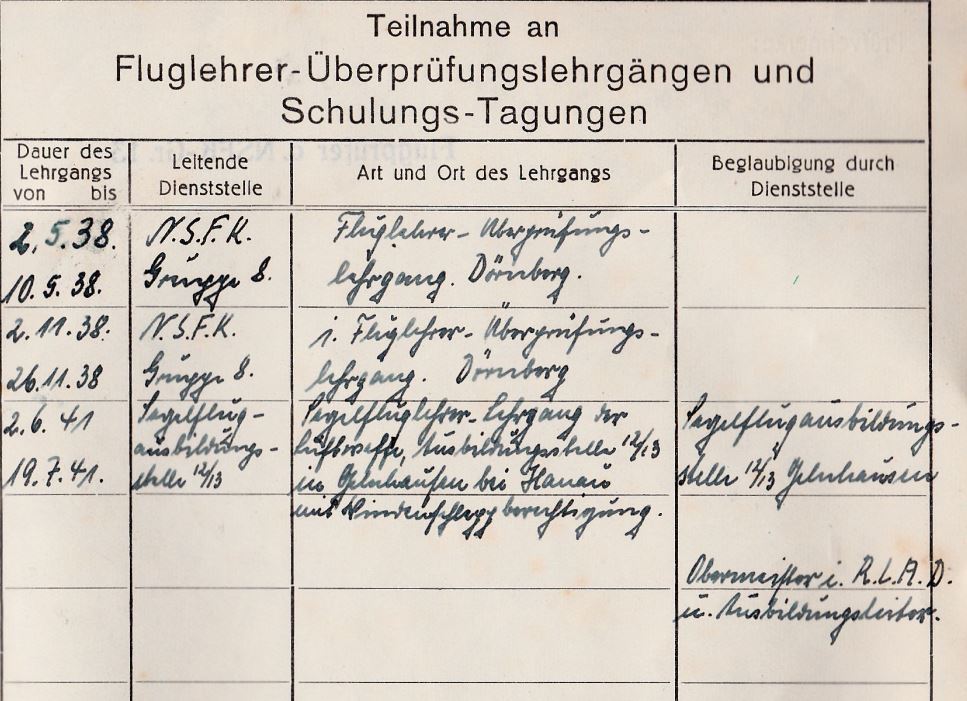 Teilnahme an
Fluglehrer-Überprüfungslehrgängen und
Schulungs-Tagungen
Dauer des
Lehrgangs
von bis
Leitende
Dienststelle
Art und Ort des Lehrgangs
Beglaubigung durch
Dienststelle
2.5.38.
10.5.38.
N.S.F.K.
Gruppe 8.
Fluglehrer-Überprüfungs-
lehrgang. Dörnberg.
2.11.38.
26.11.38
N.S.F.K.
Gruppe 8.
i. Fluglehrer-Überprüfungs-
lehrgang. Dörnberg
2.6.41
19.7.41.
Segelflug-
ausbildungs-
stelle 12/13
Segelfluglehrer-Lehrgang der
Luftwaffe, Ausbildungsstelle 12/13
in Gelnhausen bei Hanau
mit Windenschleppberechtigung.
Segelflugausbildungs-
stelle 12/13 Gelnhausen
Obermeister i. R.L.A.D.
u. Ausbildungsleiter.